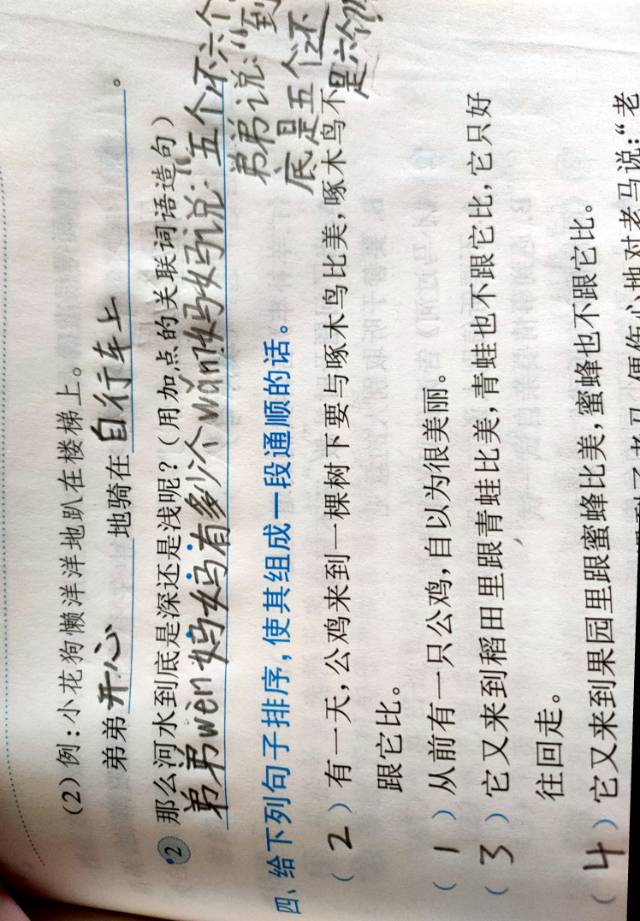 (2)例:小花狗懒洋洋地趴在楼梯上。
弟弟 开心 地骑在 自行车上 。
2 那么河水到底是深还是浅呢?(用加点的关联词语造句)
弟弟wèn妈妈有多少个wǎn,妈妈说:“五个,不六个
弟弟说:“到
底是五个还
是六个?”
四、给下列句子排序,使其组成一段通顺的话。
( 2 )有一天,公鸡来到一棵树下要与啄木鸟比美,啄木鸟不
跟它比。
( 1 )从前有一只公鸡,自以为很美丽。
( 3 )它又来到稻田里跟青蛙比美,青蛙也不跟它比,它只好
往回走。
( 4 )它又来到果园里跟蜜蜂比美,蜜蜂也不跟它比。
地对老马说:“老